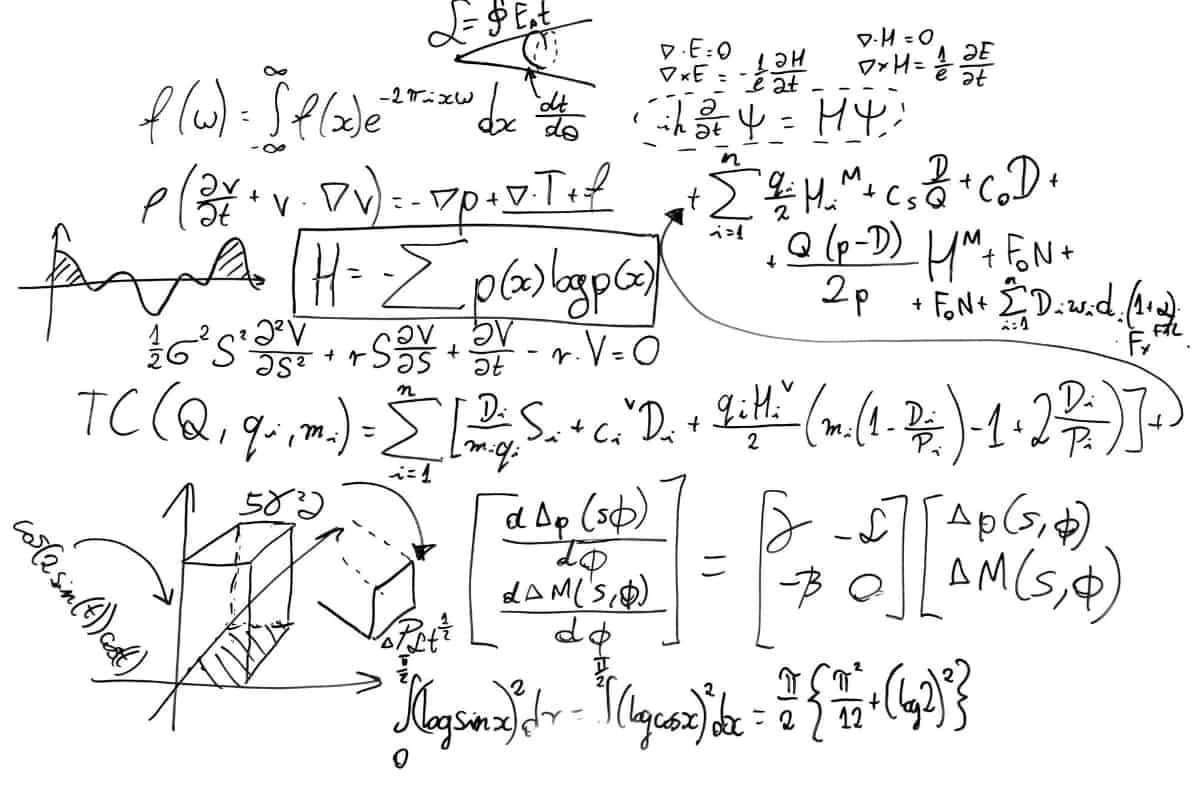 ℒ = ∮ E₀t
∇·E=0
∇×E = -1/e ∂H/∂t
∇·H=0
∇×H = 1/e ∂E/∂t
f(ω) = ∫_{-∞}^{∞} f(x)e^{-2πixω} dx dt/dθ
iħ ∂/∂t Ψ = HΨ
ρ(∂v/∂t + v·∇v) = -∇p + ∇·T + f
+ ∑_{i=1}^{n} qᵢ/2 Hᵢ^M + c_s D/Q + c₀D +
+ Q(p-D)/2p H^M + F₀N +
+ F₀N + ∑_{i=1}^{n} Dᵢwᵢdᵢ (1+α)
H = -∑ p(x) log p(x)
1/2 σ²S² ∂²V/∂S² + rS ∂V/∂S + ∂V/∂t - r·V = 0
TC(Q, qᵢ, mᵢ) = ∑_{i=1}^{n} [Dᵢ/mᵢqᵢ Sᵢ + cᵢ^v Dᵢ + qᵢHᵢ^v/2 (mᵢ(1 - Dᵢ/Pᵢ) - 1 + 2 Dᵢ/Pᵢ)] +
cos(2sin(x))
[dΔp(sϕ)/dϕ
dΔM(s,ϕ)/dϕ] = [γ -ℒ
-β 0] [Δp(s,ϕ)
ΔM(s,ϕ)
∫_0^{π/2} (log sin x)² dx = ∫^{π/2} (log cos x)² dx = π/2 {π²/12 + (log 2)²}